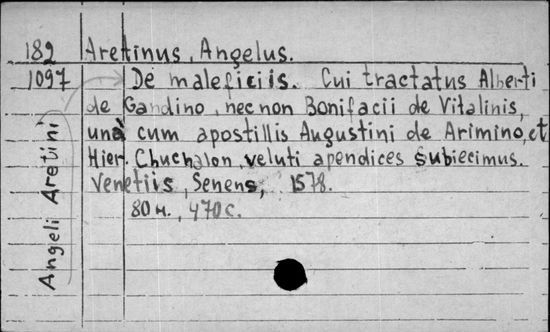 182 Aretinus, Angelus.
1097 De maleficiis. Cui tractatus Alberti
de Gandino, nec non Bonifacii de Vitalinis,
unà cum apostillis Augustini de Arimino, et
Hier. Chuchalon, veluti apendices subiecimus.
Venetiis, Senens, 1578.
80 н., 470 с.
Angeli Aretini